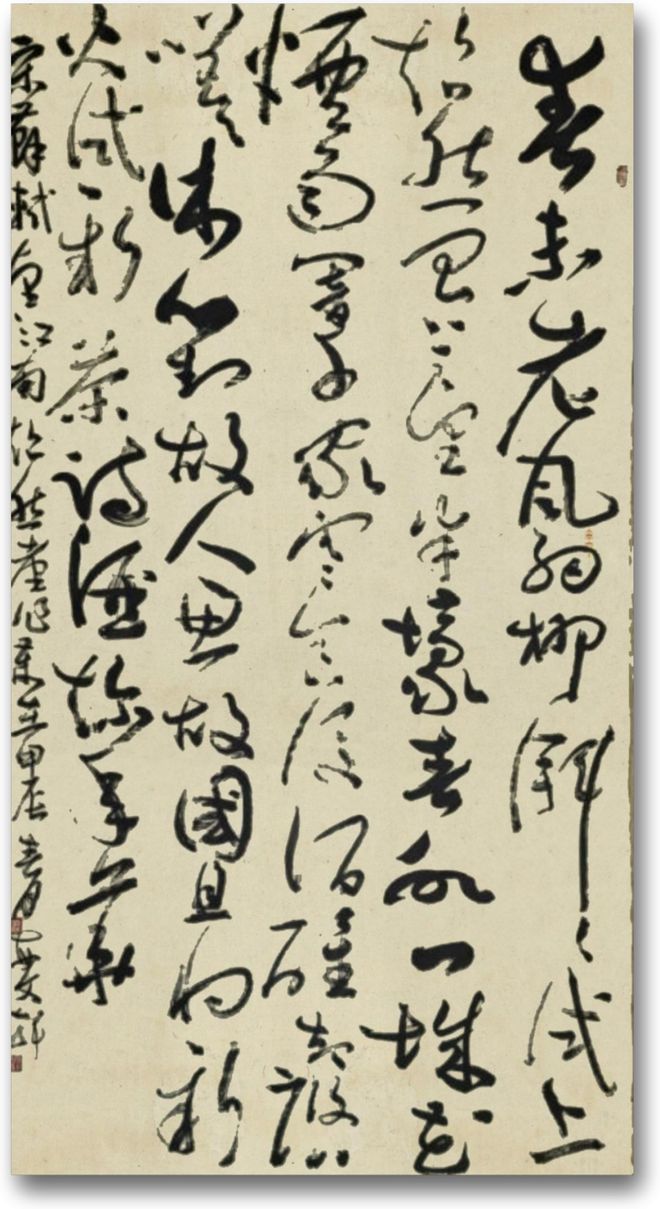 春未老風細柳斜〻試上
超然臺上望半壕春水一城花
煙雨暗千家寒食後酒醒却諮
嗟休對故人思故國且將新
火試新茶詩酒趁年華
宋蘇軾望江南超然臺作歲在甲辰春月